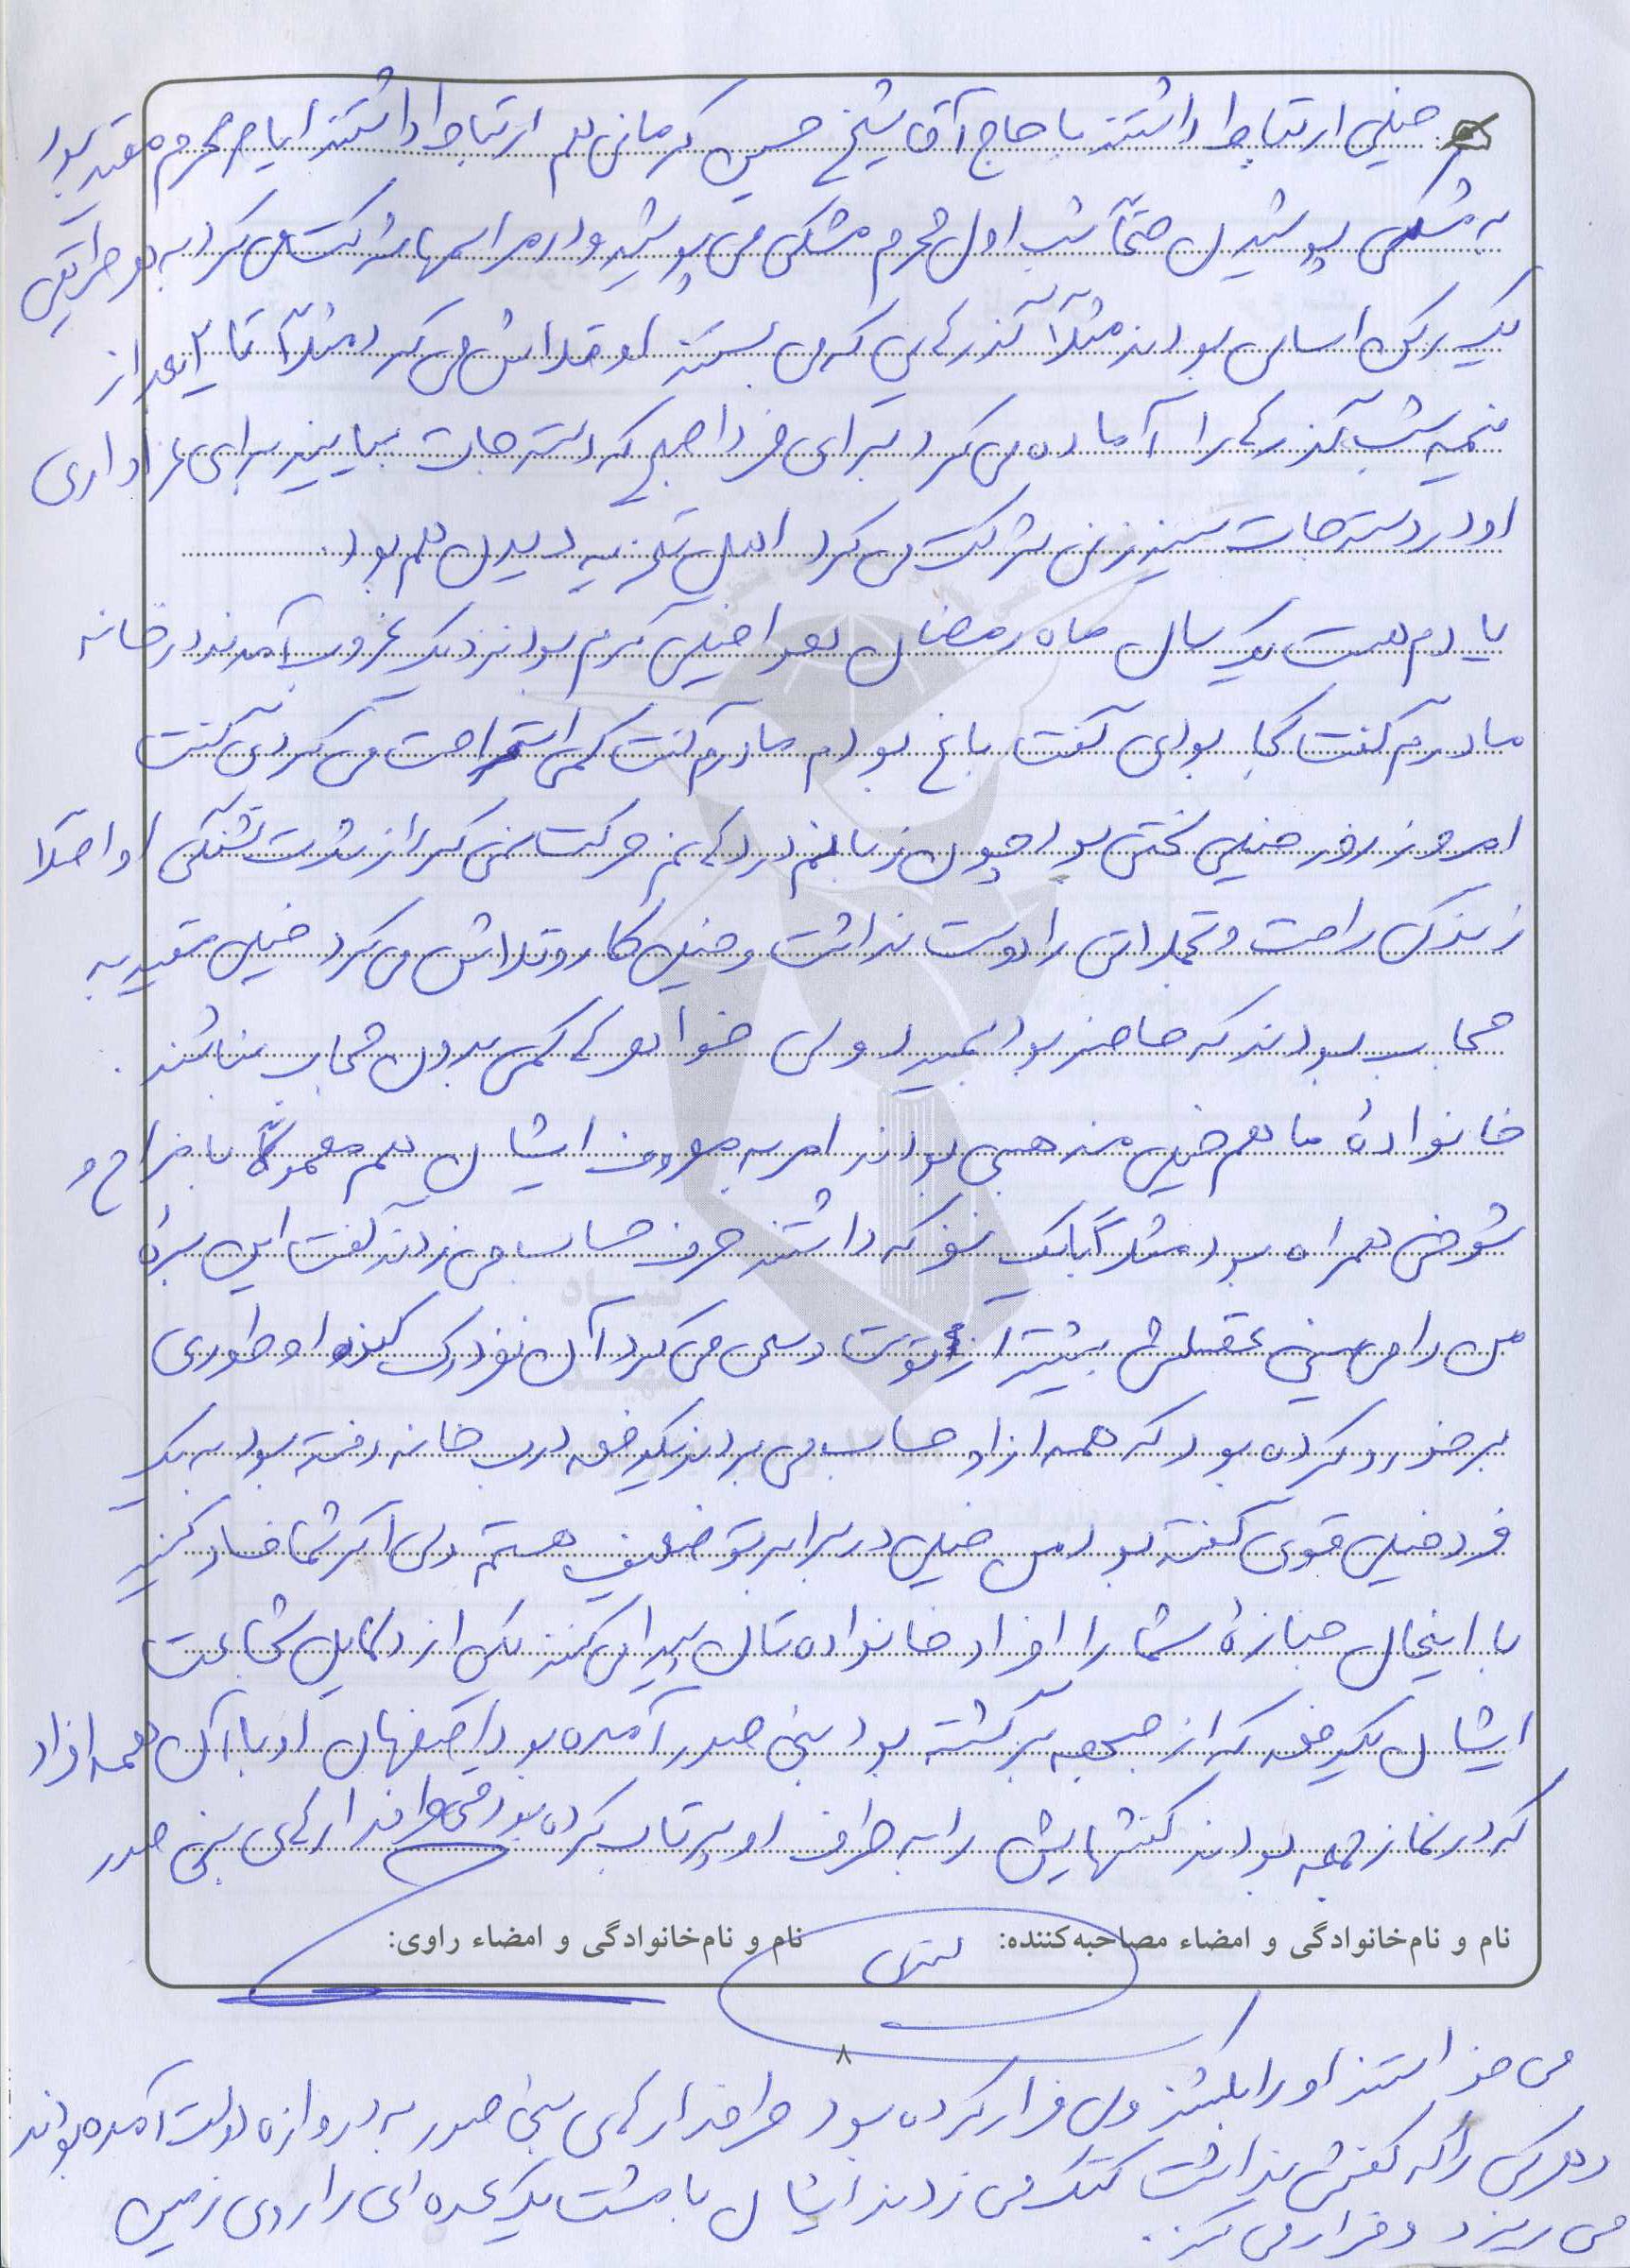 خیلی ارتباط داشتند با حاج آقا شیخ حسین کرمانی هم ارتباط داشتند ایام محرم مقید بود
به مشکی پوشیدن حتماً شب اول محرم مشکی می پوشید و در مراسمها شرکت می کرد به هر طریقی
یک رکن اساسی بودند مثلاً آذرهایی که می بستند او تلاش می کرد مثلاً تا ۲ بعد از
نیمه شب آذرها را آماده می کرد برای فردا صبح که دسته جات بیایند برای عزاداری
او در دسته جات سینه زنی شرکت می کرد اهل تعزیه دیدن هم بود.
یادم هست یک سال ماه رمضان هوا خیلی گرم بود نزدیک غروب آمدند در خانه
مادرم گفت کجا بودی گفت باغ بودم مادرم گفت کمی استراحت می کردی گفت
امروز روز خیلی سختی بود چون زبانم در دهانم حرکت نمی کرد از شدت تشنگی او اصلاً
زندگی راحت و تجملاتی را دوست نداشت و خیلی کار و تلاش می کرد خیلی مقید به
حجاب بودند که حاضر بود بمیرد ولی خواهرهای کمی بدون حجاب نباشند.
خانوادهٔ ما هم خیلی مذهبی بودند امر به معروف ایشان هم معمولاً با مزاح و
شوخی همراه بود مثلاً با یک نفر که داشتند حرف حساب می زدند گفت این برهٔ
من را می بینی عقلش بیشتر از توست و سعی می کرد آن نفر درک کند او طوری
برخورد کرده بود که همه از او حساب می بردند یکدفعه درب خانه رفته بود به یک
فرد خیلی قوی گفته بود من خیلی در برابر تو ضعیف هستم ولی اگر شما فساد کنید
با اینحال جنازهٔ شما را افراد خانواده تان پیدا می کنند یکی از دلایل شجاعت
ایشان یکدفعه که از جبهه برگشته بود بنی صدر آمده بود اصفهان او با آن همه افراد
که در نماز جمعه بودند کفشهایش را به طرف او پرتاب کرده بود طرفدارهای بنی صدر
نام و نام‌خانوادگی و امضاء مصاحبه‌کننده: نام و نام‌خانوادگی و امضاء راوی:
۸
می خواستند او را بکشند ولی فرار کرده بود طرفدارهای بنی صدر به دروازه دولت آمده بودند
و هر کس را که کفش نداشت کتک می زدند ایشان با مشت یک عده ای را روی زمین
می ریزد و فرار می کند.